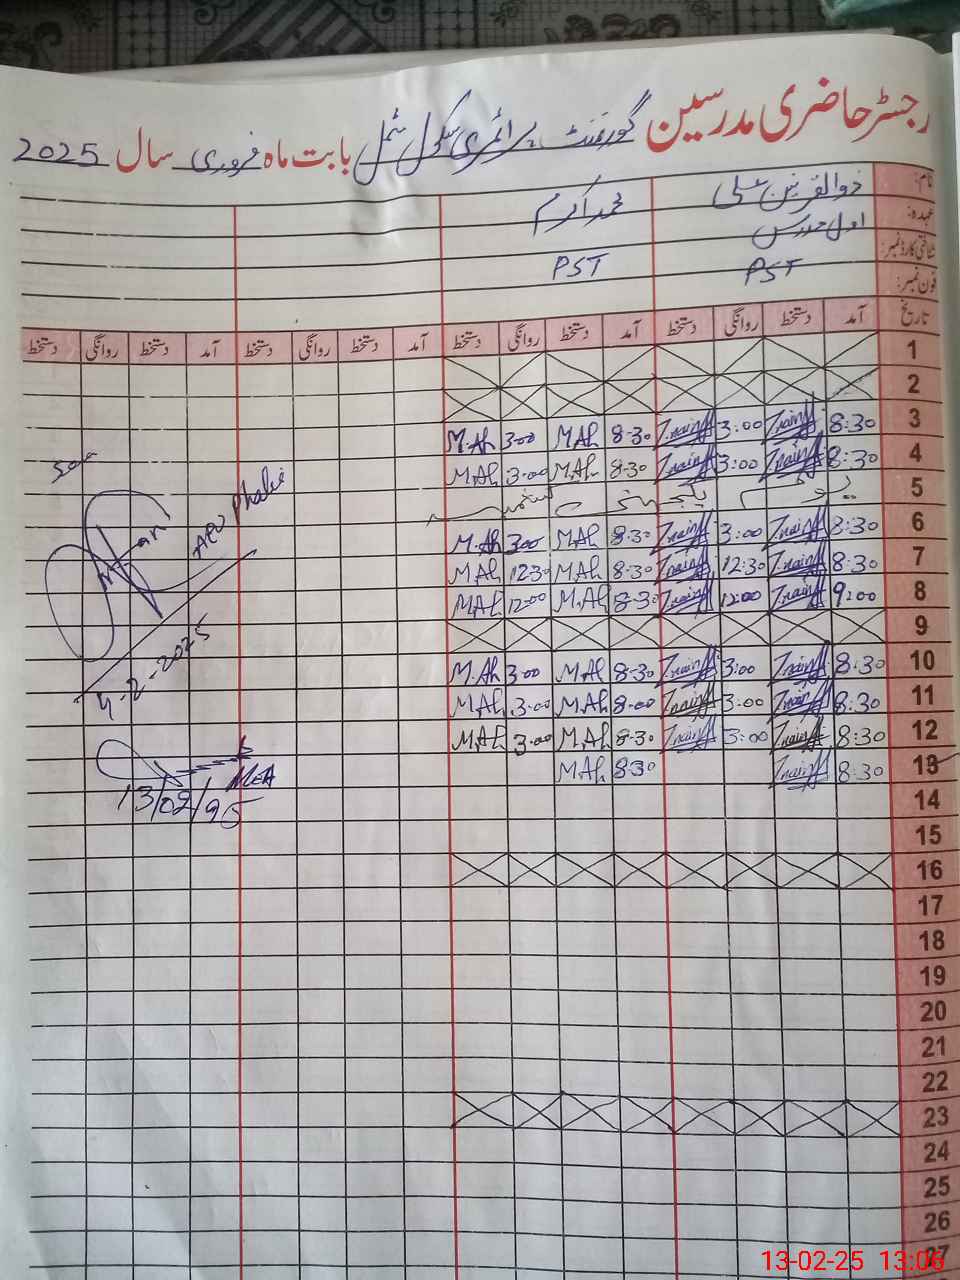 رجسٹر حاضری مدرسین گورنمنٹ پرائمری سکول شمل بابت ماہ فروری سال 2025
نام: ذوالقرنین علی محمد اکرم
عہدہ: اول مدرس
شناختی کارڈ نمبر: PST PST
فون نمبر:
تاریخ آمد دستخط روانگی دستخط آمد دستخط روانگی دستخط آمد دستخط روانگی دستخط آمد دستخط روانگی دستخط
1
2
3 8:30 3:00 8:30 M.Ah 3:00 M.Ah
4 8:30 3:00 8:30 M.Ah 3:00 M.Ah
5 یوم یکجہتی کشمیر
6 8:30 3:00 8:30 M.Ah 3:00 M.Ah
7 8:30 12:30 8:30 M.Ah 12:30 M.Ah
8 9:00 12:00 8:30 M.Ah 12:00 M.Ah
9
10 8:30 3:00 8:30 M.Ah 3:00 M.Ah
11 8:30 3:00 8:00 M.Ah 3:00 M.Ah
12 8:30 3:00 8:30 M.Ah 3:00 M.Ah
13 8:30 8:30 M.Ah
14
15
16
17
18
19
20
21
22
23
24
25
26
27
AEO Phalia
4-2-2025
MEA
13/02/25
13-02-25 13:06